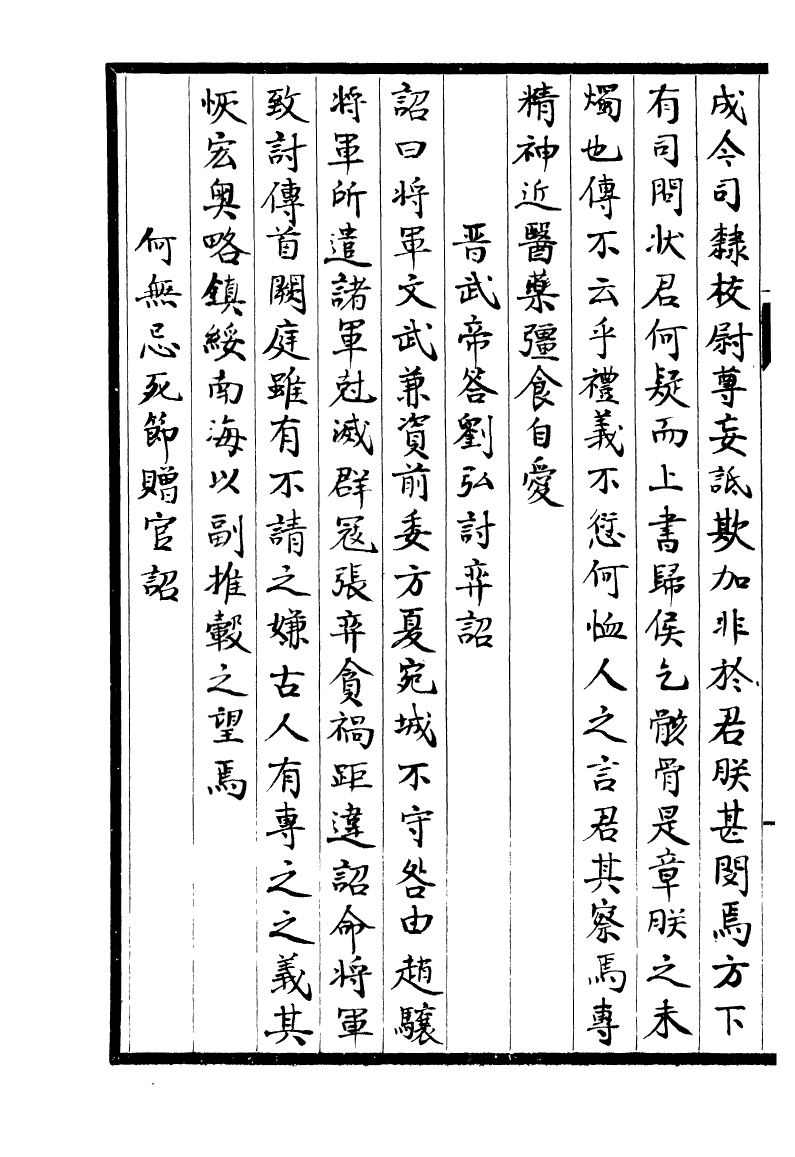 成今司隸校尉尊妄詆欺加非於君朕甚閔焉方下
有司問狀君何疑而上書歸侯乞骸骨是章朕之未
燭也傳不云乎禮義不愆何恤人之言君其察焉專
精神近醫藥彊食自愛
晋武帝答劉弘討弈詔
詔曰将軍文武兼資前委方夏宛城不守咎由趙驤
将軍所遣諸軍尅滅群冦張弈貪禍距違詔命将軍
致討傳首闕庭雖有不請之嫌古人有專之之義其
恢宏奥略鎮綏南海以副推轂之望焉
何無忌死節贈官詔